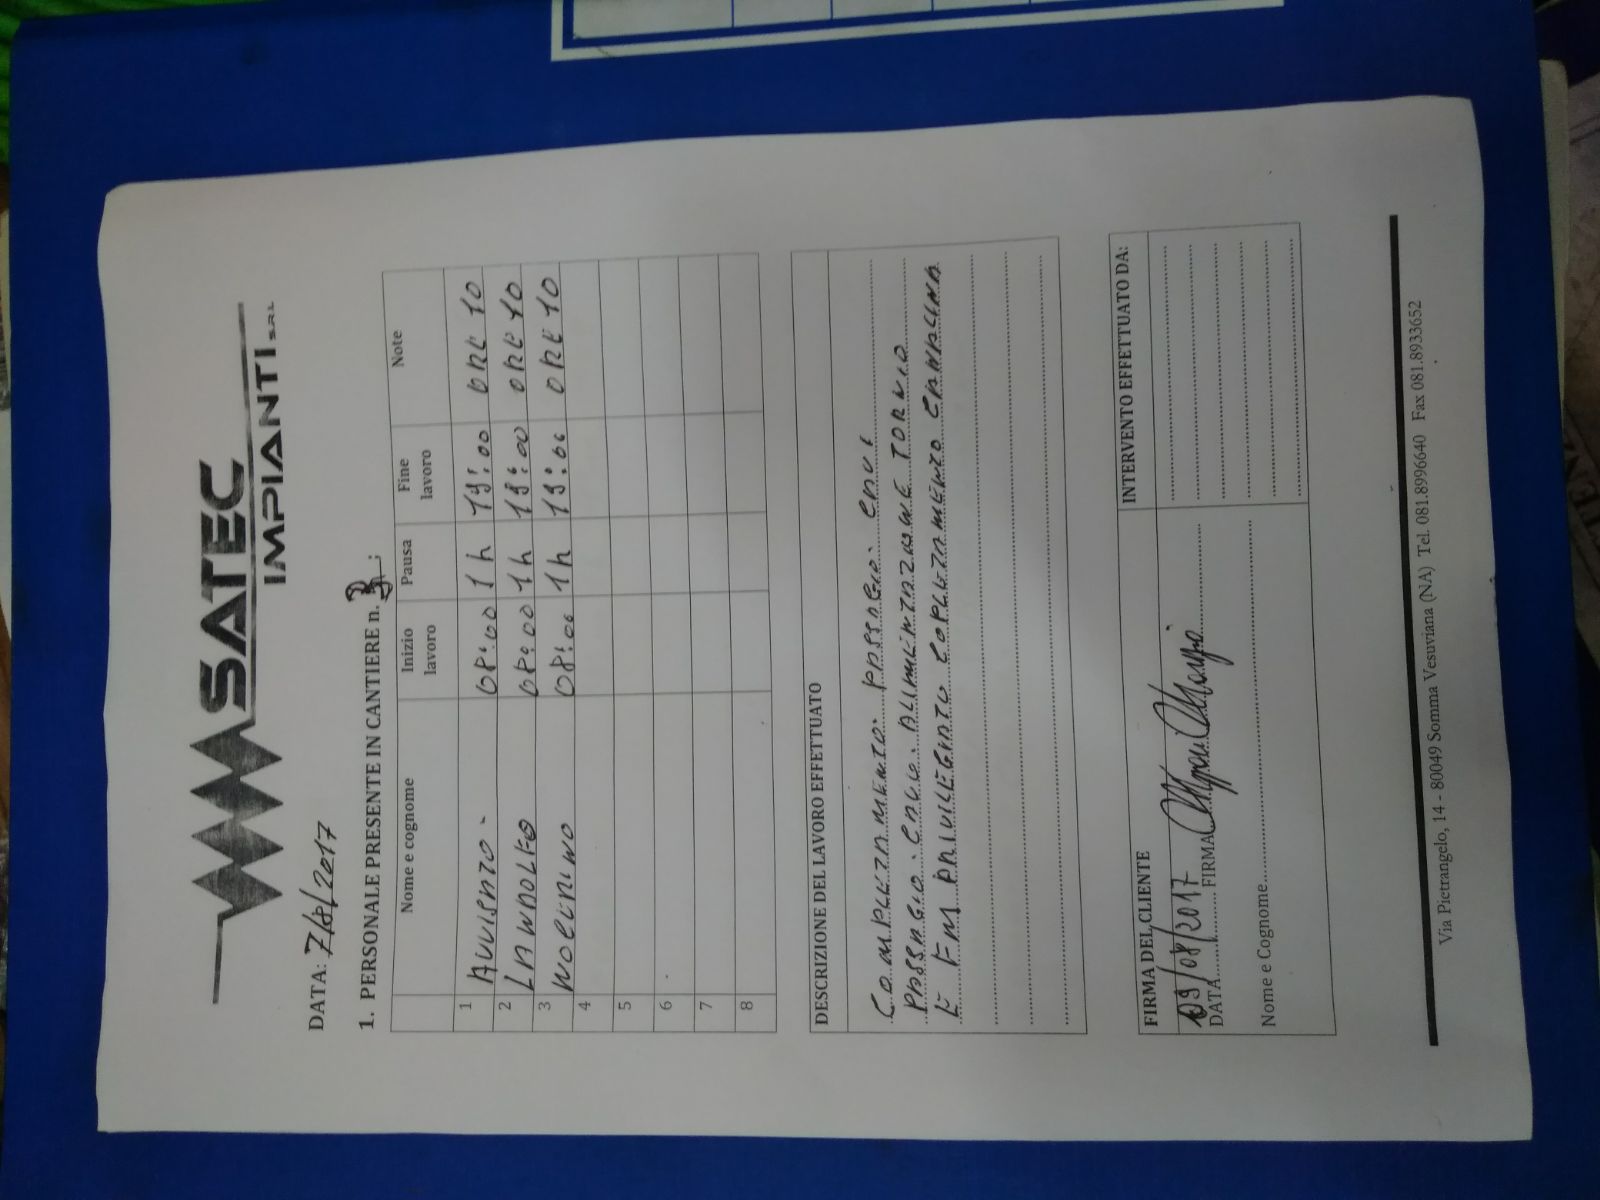 SATEC
IMPIANTI S.R.L.
DATA: 7/8/2017
1. PERSONALE PRESENTE IN CANTIERE n. 3 ;
Nome e cognome Inizio lavoro Pausa Fine lavoro Note
1 AVVISATO 08:00 1h 19:00 ORE 10
2 LANDOLFO 08:00 1h 19:00 ORE 10
3 NOCERINO 08:00 1h 19:00 ORE 10
4
5
6
7
8
DESCRIZIONE DEL LAVORO EFFETTUATO
COMPLETAMENTO. PASSAGIO. CAVI
PASSAGIO. CAVO. ALIMENTAZIONE TORNIO
E FM PRIVILEGIATO COPLETAMENTO CANALINA
FIRMA DEL CLIENTE
INTERVENTO EFFETTUATO DA:
DATA 09/08/2017 FIRMA
Nome e Cognome
Via Pietrangelo, 14 - 80049 Somma Vesuviana (NA) Tel. 081.8996640 Fax 081.8933652